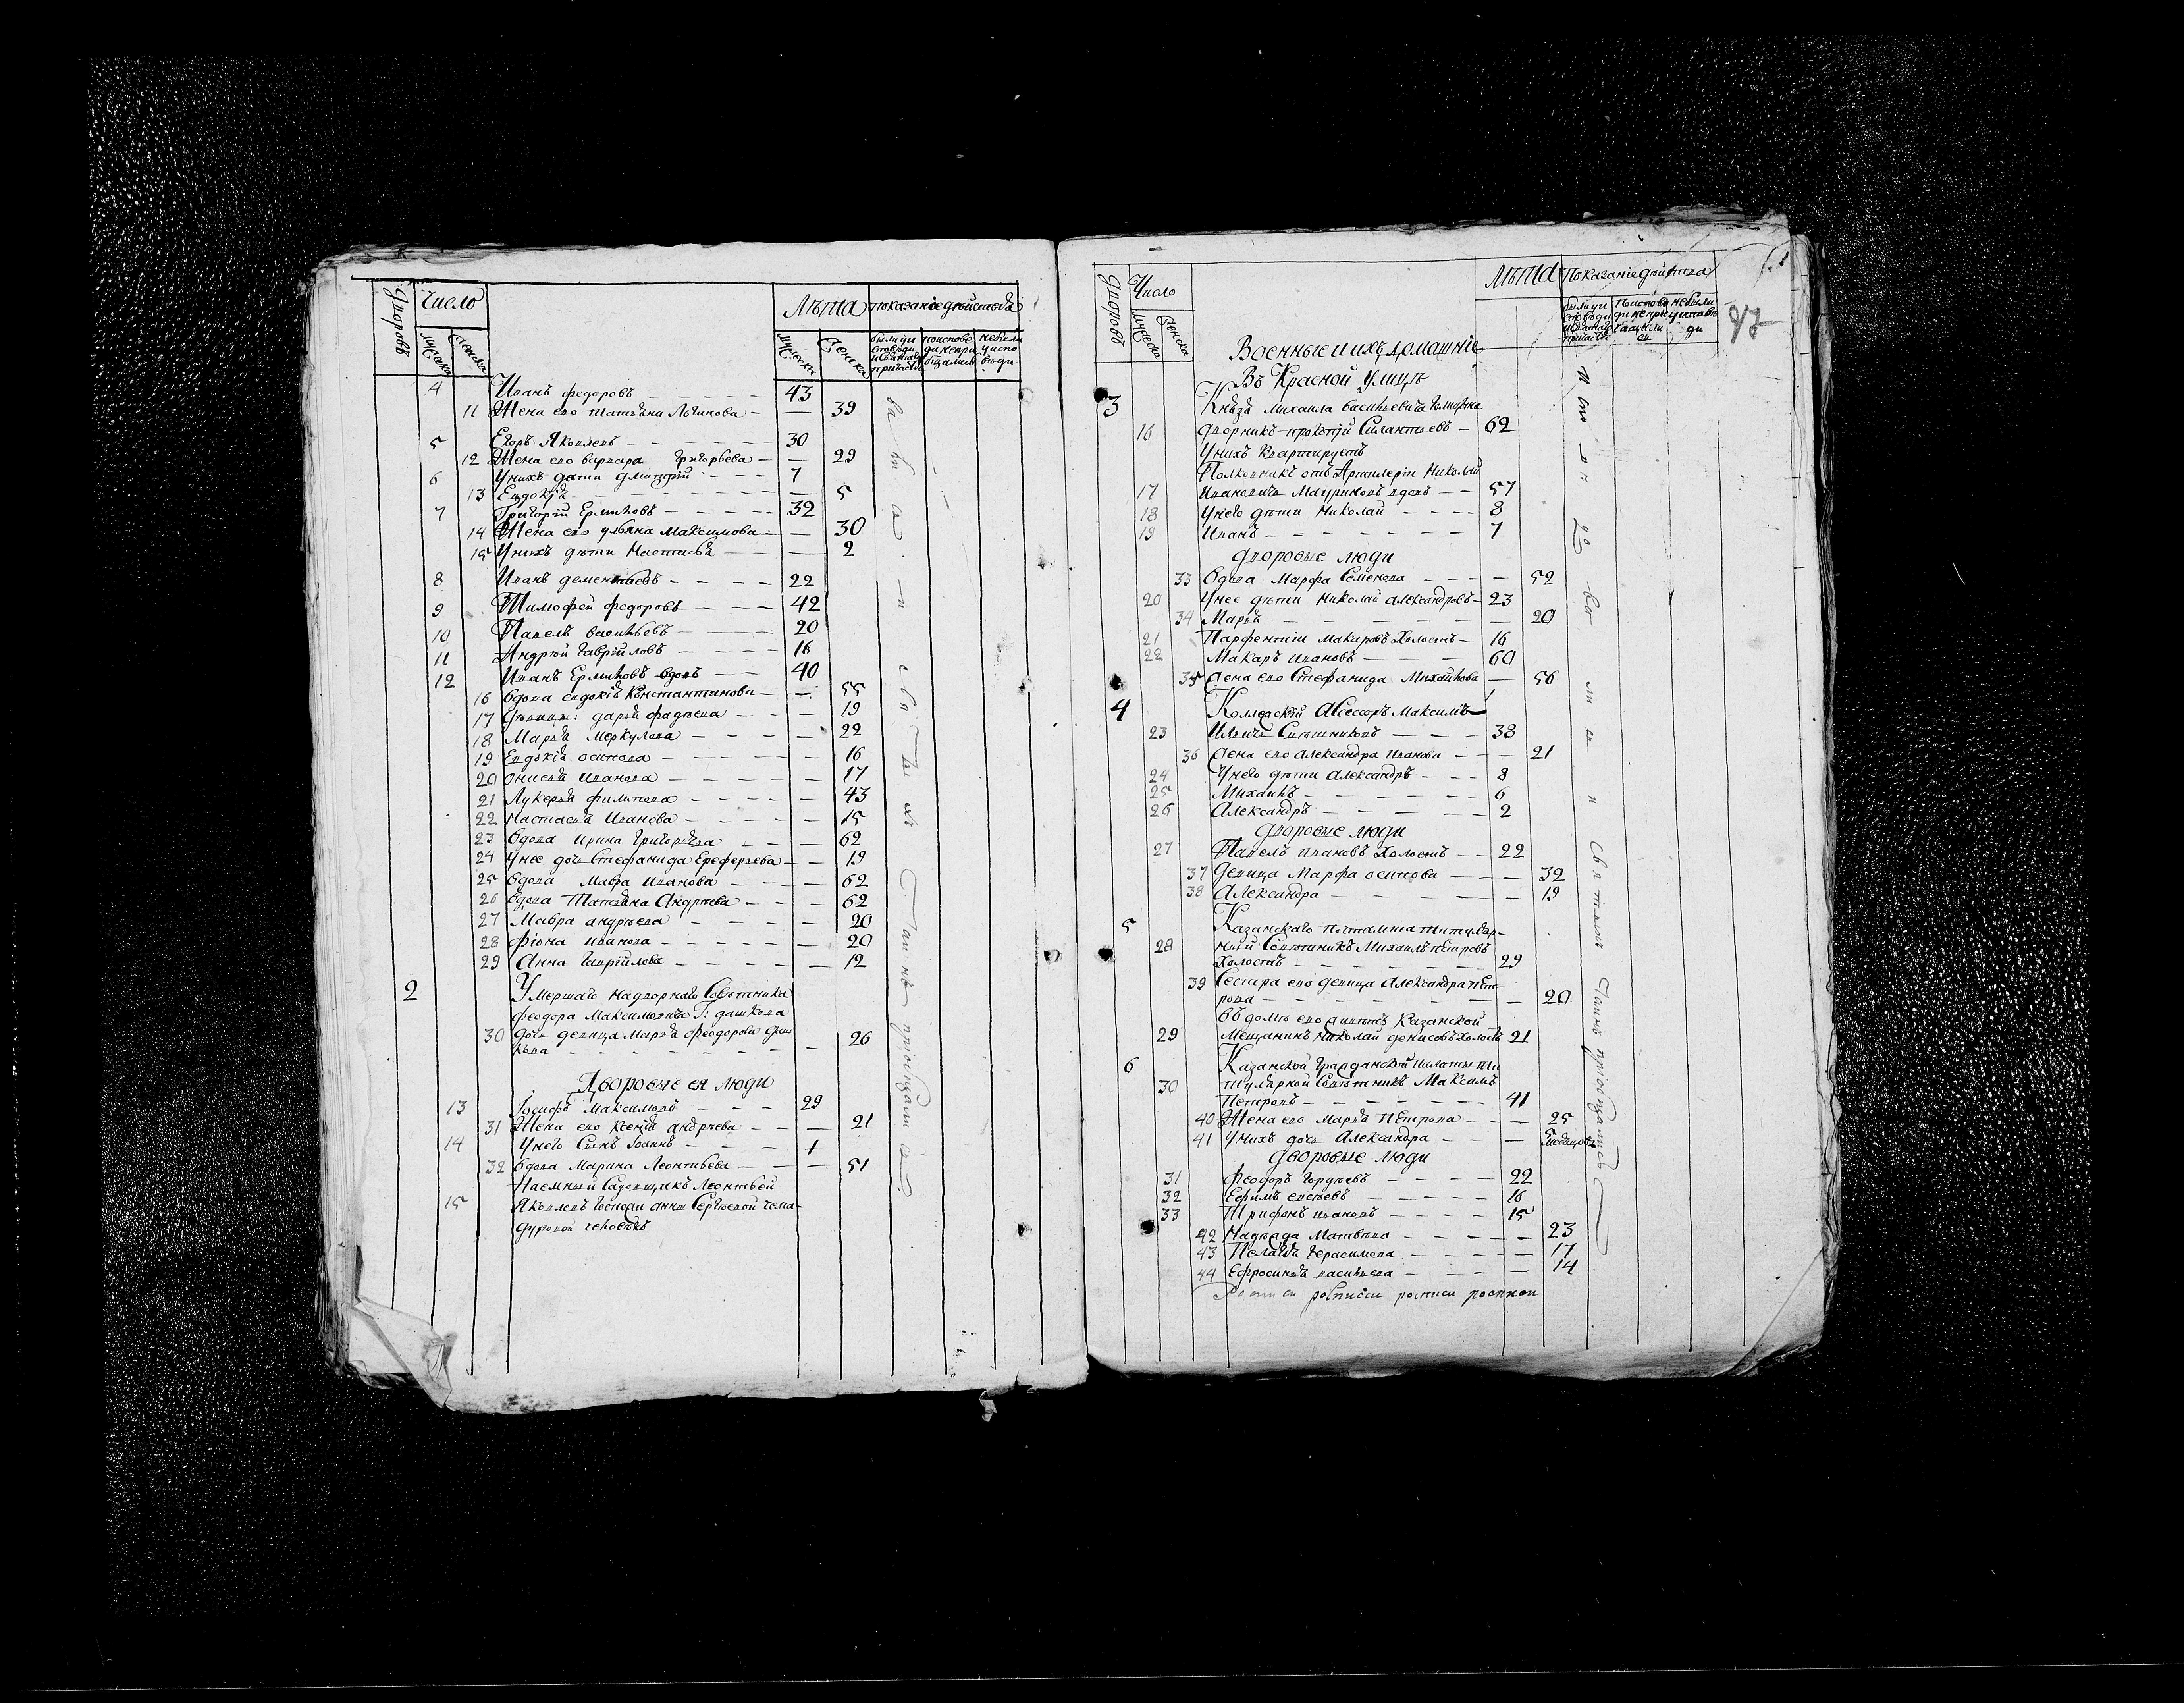 Дворовъ
Число
Лѣта
показаніе дѣйства
мужеска
женска
мужеска
женска
4 Иванъ федоровъ 43
11 Жена его татьяна 39
5 Егоръ Яковлевъ 30
12 Жена его варвара Григорьева 29
6 Унихъ дѣти дмитрій 7
13 Евдокія 5
7 Григорій Ермиловъ 32
14 Жена его ульяна Максимова 30
15 Унихъ дѣти Настасья 2
8 Иванъ дементьевъ 22
9 Тимофей федоровъ 42
10 Павелъ васильевъ 20
11 Андрей Гаврійловъ 16
12 Иванъ Ермиловъ вдовъ 40
16 вдова евдокія Константинова 55
17 дѣвицы: дарья фадѣева 19
18 Марья Меркулова 22
19 Евдокія осипова 16
20 онисья Иванова 17
21 Лукерья филипова 43
22 Настасья Иванова 15
23 вдова ирина Григорьева 62
24 унее дочь Стефанида Ереферьева 19
25 вдова Мавра иванова 62
26 вдова Татьяна Андрѣева 62
27 Мавра андрѣева 20
28 фіона иванова 20
29 Анна Гаврійлова 12
2 Умершаго надворнаго Совѣтника
феодора Максимовича Г: дашкова
30 дочь девица Марья Феодорова даш
кова 26
Дворовые ея люди
13 Іосифъ Максимовъ 29
31 Жена его Ксенія андрѣева 21
14 Унего Сынъ Іоаннъ 1
32 вдова Марина Леонтьева 51
Наемный Садовщикъ Леонтьей
15 Яковлевъ Госпожи анны Сергѣевой
человѣкъ
Дворовъ
Число
Лѣта
Показаніе дѣйства
97
мужеска
женска
Военные и ихъ домашніе
Въ Красной улицѣ
3 Князя михаила васильевича
16 дворникъ прокопій Силантьевъ 62
Унихъ Квартируетъ
Полковникъ отъ Артилеріи Николай
17 ивановичь вдовъ 57
18 Унего дѣти Николай 8
19 Иванъ 7
дворовые люди
33 вдова Марфа Семенова 52
20 Унее дѣти николай александровъ 23
34 Марья 20
21 Парфентій макаровъ Холостъ 16
22 Макаръ ивановъ 60
35 жена его Стефанида Михайлова 56
4 Коллежскій Асессоръ Максимъ
23 Ильичь 38
36 жена его александра иванова 21
24 Унего дѣти александръ 8
25 Михаилъ 6
26 Александръ 2
дворовые люди
27 Павелъ ивановъ Холостъ 22
37 девица Марфа осипова 32
38 Александра 19
5 Казанскаго почтамта титуляр-
28 ный Совѣтникъ Михаилъ петровъ
Холостъ 29
39 Сестра его девица александра пет-
рова 20
въ домѣ его живетъ Казанской
29 Мещанинъ николай денисовъ холостъ 21
6 Казанской Гражданской палаты ти
30 тулярной Совѣтникъ Максимъ
Петровъ 41
40 Жена его марья петрова 25
41 Унихъ дочь александра 5 месяцовъ
дворовые люди
31 Феодоръ Гордѣевъ 22
32 Ефимъ евсѣевъ 16
33 Трифонъ ивановъ 15
42 Надежда Матвѣева 23
43 Пелагія Герасимова 17
44 Ефросинья васильева 14
росписи росписи